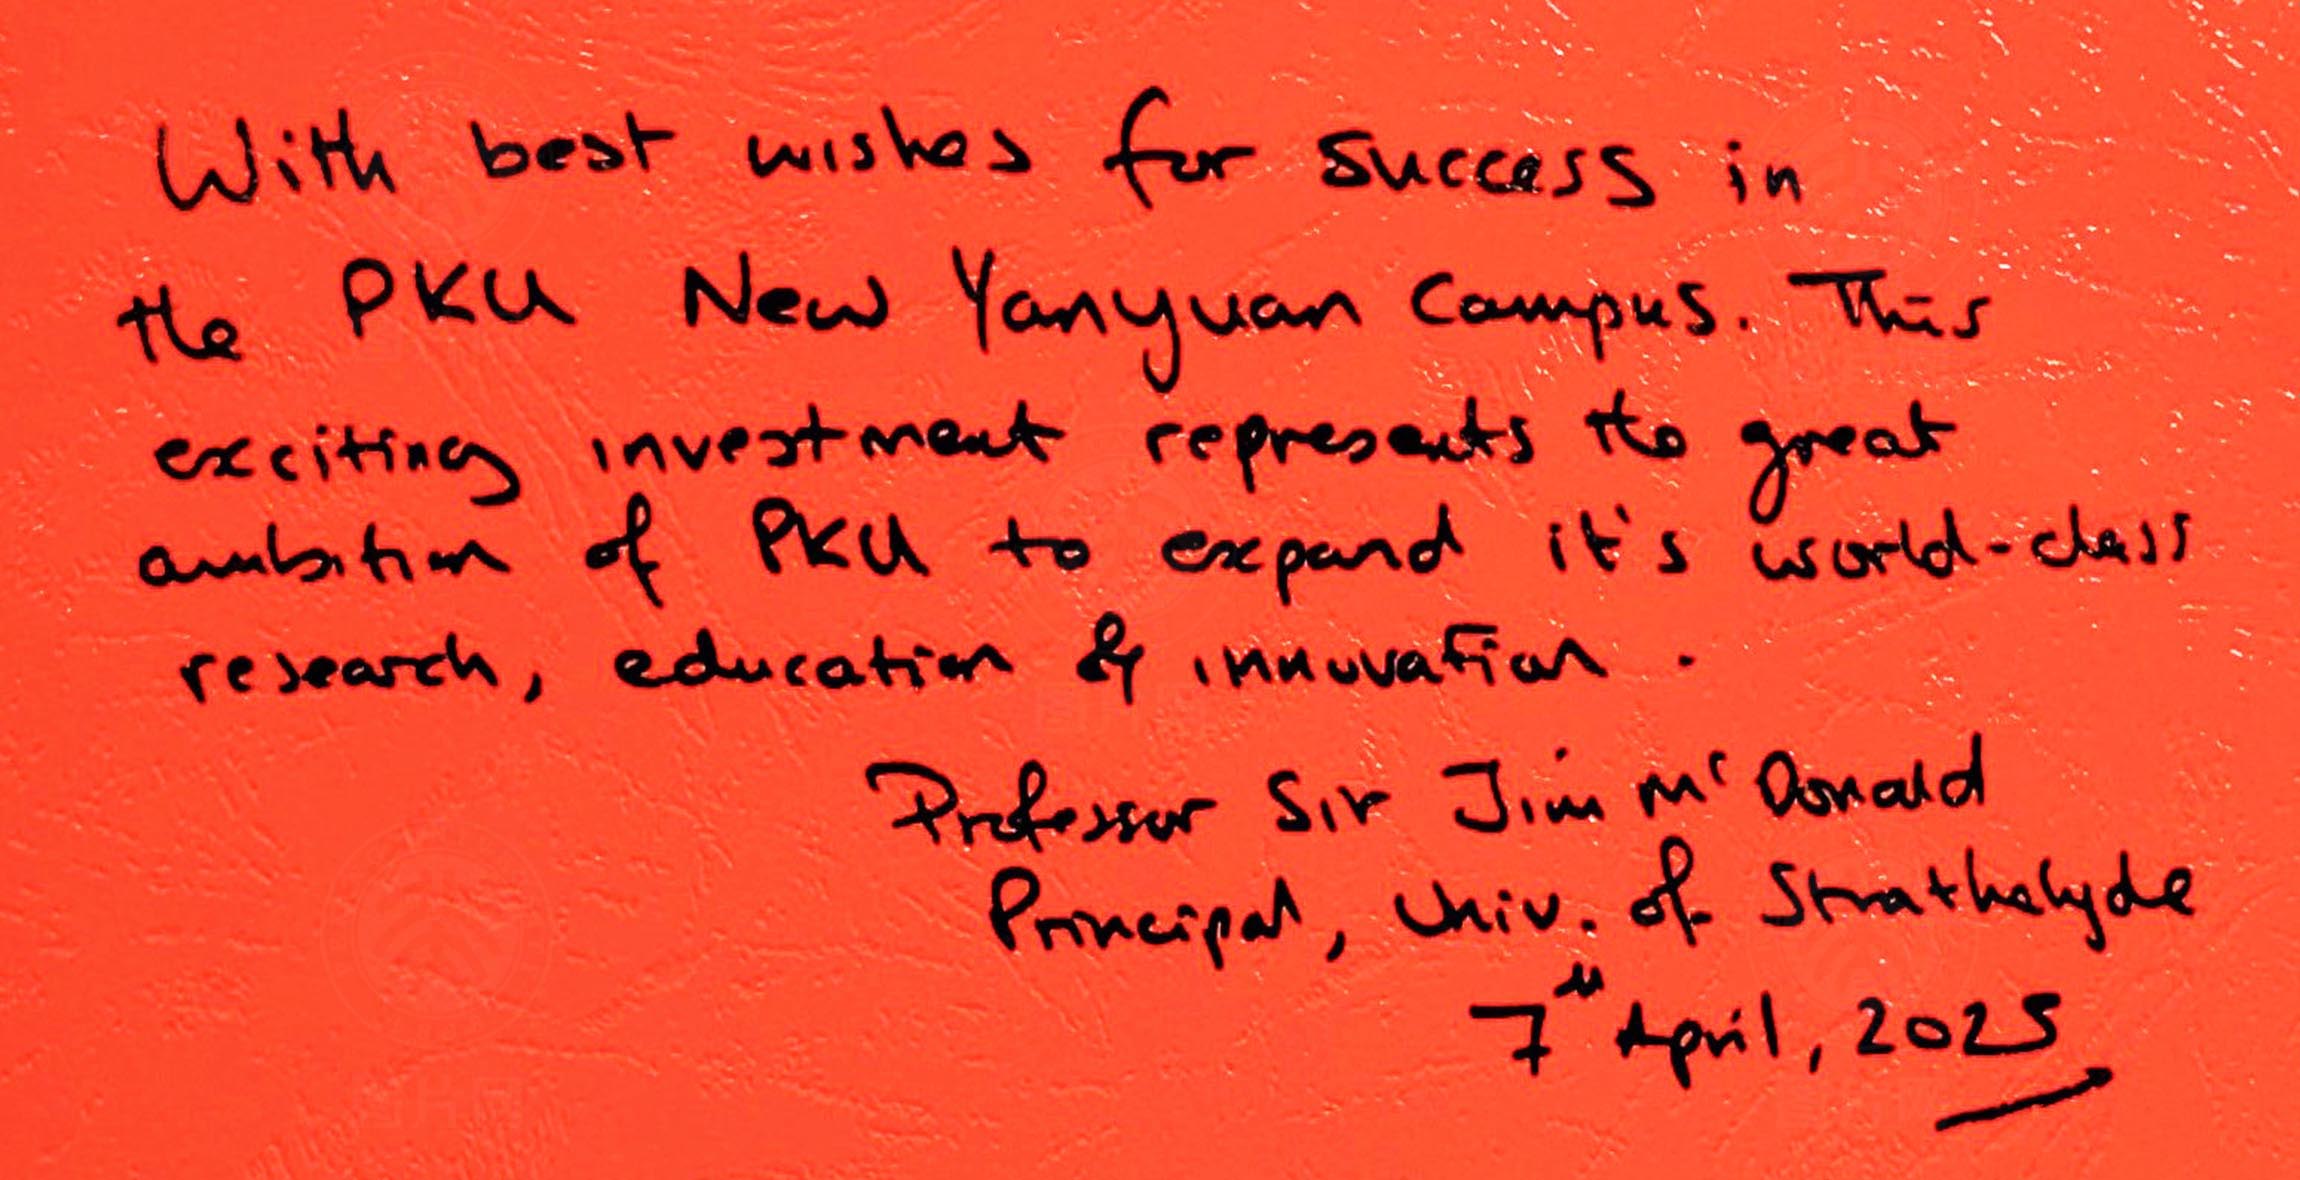 With best wishes for success in
the PKU New Yanyuan Campus. This
exciting investment represents the great
ambition of PKU to expand it's world-class
research, education & innovation.
Professor Sir Jim McDonald
Principal, Univ. of Strathclyde
7th April, 2025